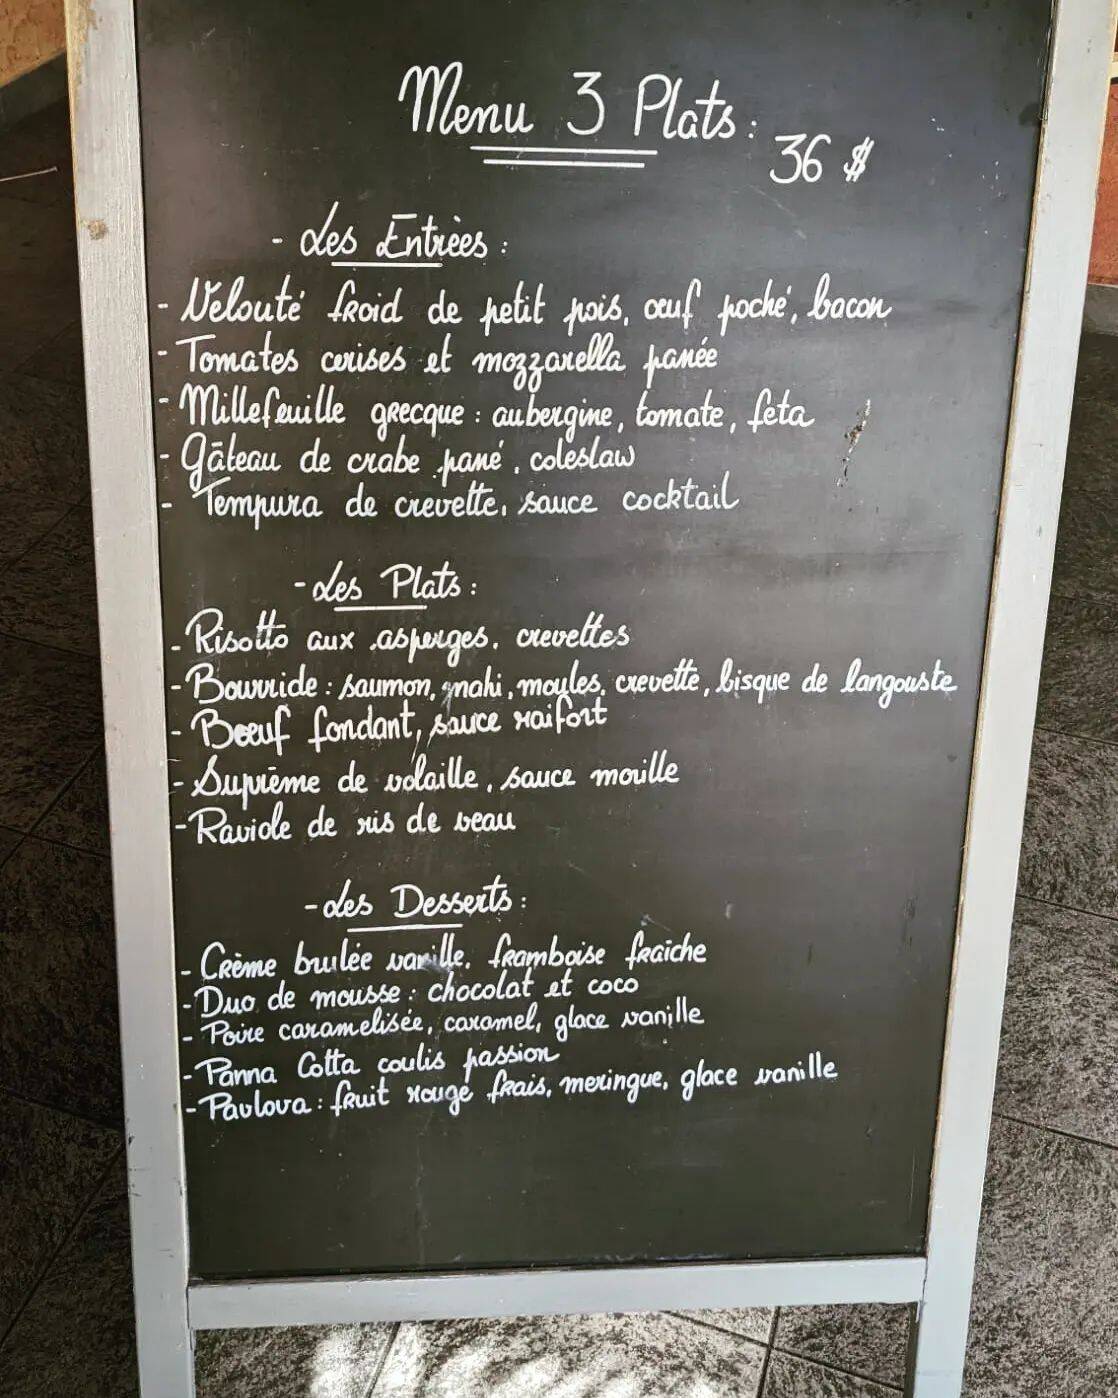 Menu 3 Plats :
36 $
- Les Entrèes :
- Velouté froid de petit pois, œuf poché, bacon
- Tomates cerises et mozzarella panée
- Millefeuille grecque : aubergine, tomate, feta
- Gâteau de crabe pané, coleslaw
- Tempura de crevette, sauce cocktail
- Les Plats :
- Risotto aux asperges, crevettes
- Bourride : saumon, mahi, moules, crevette, bisque de langouste
- Bœuf fondant, sauce raifort
- Suprême de volaille, sauce morille
- Raviole de ris de veau
- Les Desserts :
- Crème brulée vanille, framboise fraîche
- Duo de mousse : chocolat et coco
- Poire caramelisée, caramel, glace vanille
- Panna Cotta coulis passion
- Pavlova : fruit rouge frais, meringue, glace vanille